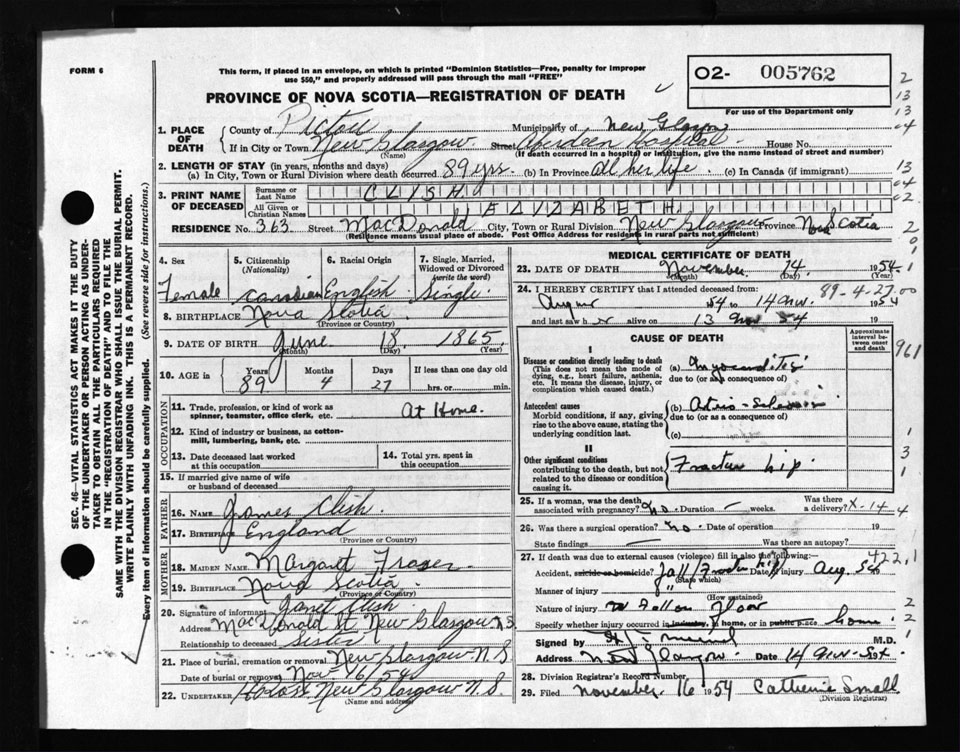 FORM 6
This form, if placed in an envelope, on which is printed "Dominion Statistics—Free, penalty for improper
use $50," and properly addressed will pass through the mail "FREE"
PROVINCE OF NOVA SCOTIA—REGISTRATION OF DEATH
02- 005762
For use of the Department only
1. PLACE OF DEATH
County of Pictou Municipality of New Glasgow
If in City or Town New Glasgow (Name) Street Aberdeen Hospital House No.
(If death occurred in a hospital or institution, give the name instead of street and number)
2. LENGTH OF STAY (in years, months and days)
(a) In City, Town or Rural Division where death occurred 89 yrs. (b) In Province all her life (c) In Canada (if immigrant)
3. PRINT NAME OF DECEASED
Surname or Last Name CLISH
All Given or Christian Names ELIZABETH
RESIDENCE No. 363 Street MacDonald City, Town or Rural Division New Glasgow Province Nova Scotia
(Residence means usual place of abode. Post Office Address for residents in rural parts not sufficient)
4. Sex Female
5. Citizenship (Nationality) Canadian
6. Racial Origin English
7. Single, Married, Widowed or Divorced (write the word) Single
8. BIRTHPLACE Nova Scotia
(Province or Country)
9. DATE OF BIRTH June 18 1865
(Month) (Day) (Year)
10. AGE in Years 89 Months 4 Days 27 If less than one day old
hrs. or min.
OCCUPATION
11. Trade, profession, or kind of work as spinner, teamster, office clerk, etc. At Home.
12. Kind of industry or business, as cotton-mill, lumbering, bank, etc.
13. Date deceased last worked at this occupation
14. Total yrs. spent in this occupation
15. If married give name of wife or husband of deceased
FATHER
16. NAME James Clish
17. BIRTHPLACE England
(Province or Country)
MOTHER
18. MAIDEN NAME Margaret Fraser
19. BIRTHPLACE Nova Scotia
(Province or Country)
20. Signature of informant Janet Clish
Address MacDonald St. New Glasgow N.S
Relationship to deceased Sister
21. Place of burial, cremation or removal New Glasgow N.S
Date of burial or removal Nov 16/54
22. UNDERTAKER New Glasgow N.S
(Name and address)
MEDICAL CERTIFICATE OF DEATH
23. DATE OF DEATH November 14 1954
(Month) (Day) (Year)
89-4-27.00
24. I HEREBY CERTIFY that I attended deceased from:
54 to 14 Nov 1954
and last saw h er alive on 13 Nov 54 19
CAUSE OF DEATH
Approximate interval between onset and death
I
Disease or condition directly leading to death
(This does not mean the mode of dying, e.g., heart failure, asthenia, etc. It means the disease, injury, or complication which caused death.)
(a) Myocarditis
due to (or as a consequence of)
Antecedent causes
Morbid conditions, if any, giving rise to the above cause, stating the underlying condition last.
(b)
due to (or as a consequence of)
(c)
II
Other significant conditions
contributing to the death, but not related to the disease or condition causing it.
Fracture hip
25. If a woman, was the death associated with pregnancy? no Duration — weeks. Was there a delivery?
26. Was there a surgical operation? no. Date of operation 19
State findings — Was there an autopsy?
27. If death was due to external causes (violence) fill in also the following:
Accident, suicide or homicide? Fall/ Date of injury Aug. 54
(State which)
Manner of injury
(How sustained)
Nature of injury Floor
Specify whether injury occurred in industry, in home, or in public place home
Signed by M.D.
Address New Glasgow Date 14 Nov 54
28. Division Registrar's Record Number
29. Filed November 16 1954 Catherine Small
(Division Registrar)
SEC. 46—VITAL STATISTICS ACT MAKES IT THE DUTY
OF THE UNDERTAKER OR PERSON ACTING AS UNDER-
TAKER TO OBTAIN ALL THE PARTICULARS REQUIRED
IN THE "REGISTRATION OF DEATH" AND TO FILE THE
SAME WITH THE DIVISION REGISTRAR WHO SHALL ISSUE THE BURIAL PERMIT.
WRITE PLAINLY WITH UNFADING INK. THIS IS A PERMANENT RECORD.
Every item of information should be carefully supplied. (See reverse side for instructions.)